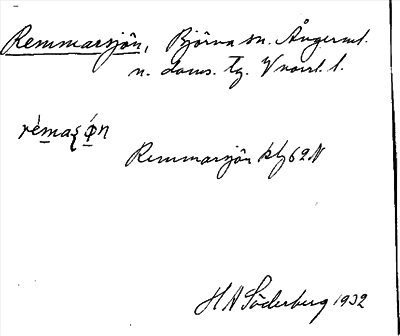 Remmarsjön, Björna sn. Ångerml.
n. doms. tg. V norrl. l.
rémaʂǿn
Remmarsjön kbl 62 N
H A Söderberg 1932